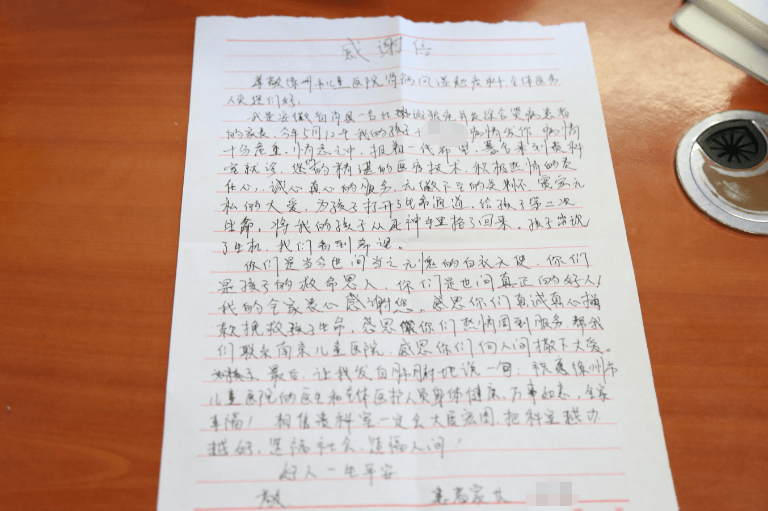 感谢信
尊敬徐州市儿童医院肾病风湿 科全体医务
人员您们好:
我是安徽 县一名 并发综合 病患者
的家长,今年5月12日我的孩子 病情发作,病情
十分危重,情急之中,抱着一线希望,慕名来到贵科
室就诊,您们的精湛的医疗技术,积极热情的责
任心,诚心真心的服务,无微不至的关怀、宽宏无
私的大爱,为孩子打开了生命通道,给孩子第二次
生命,将我的孩子从死神手里抢了回来,孩子
了生机,我们看到希望。
你们是当今世间当之无愧的白衣天使,你们
是孩子的救命恩人,你们是世间真正的好人!
我的全家衷心感谢您,感恩你们真诚真心
挽救孩子生命,感恩你们热情周到服务,帮我
们联系南京儿童医院,感恩你们向人间撒下大爱。
最后,让我发自肺腑地说一句:祝愿徐州市
儿童医院的医生和全体医护人员身体健康,万事如意,全家
幸福!相信贵科室一定会大展宏图,把科室越办
越好,造福社会,造福人间!
好人一生平安
患者家长